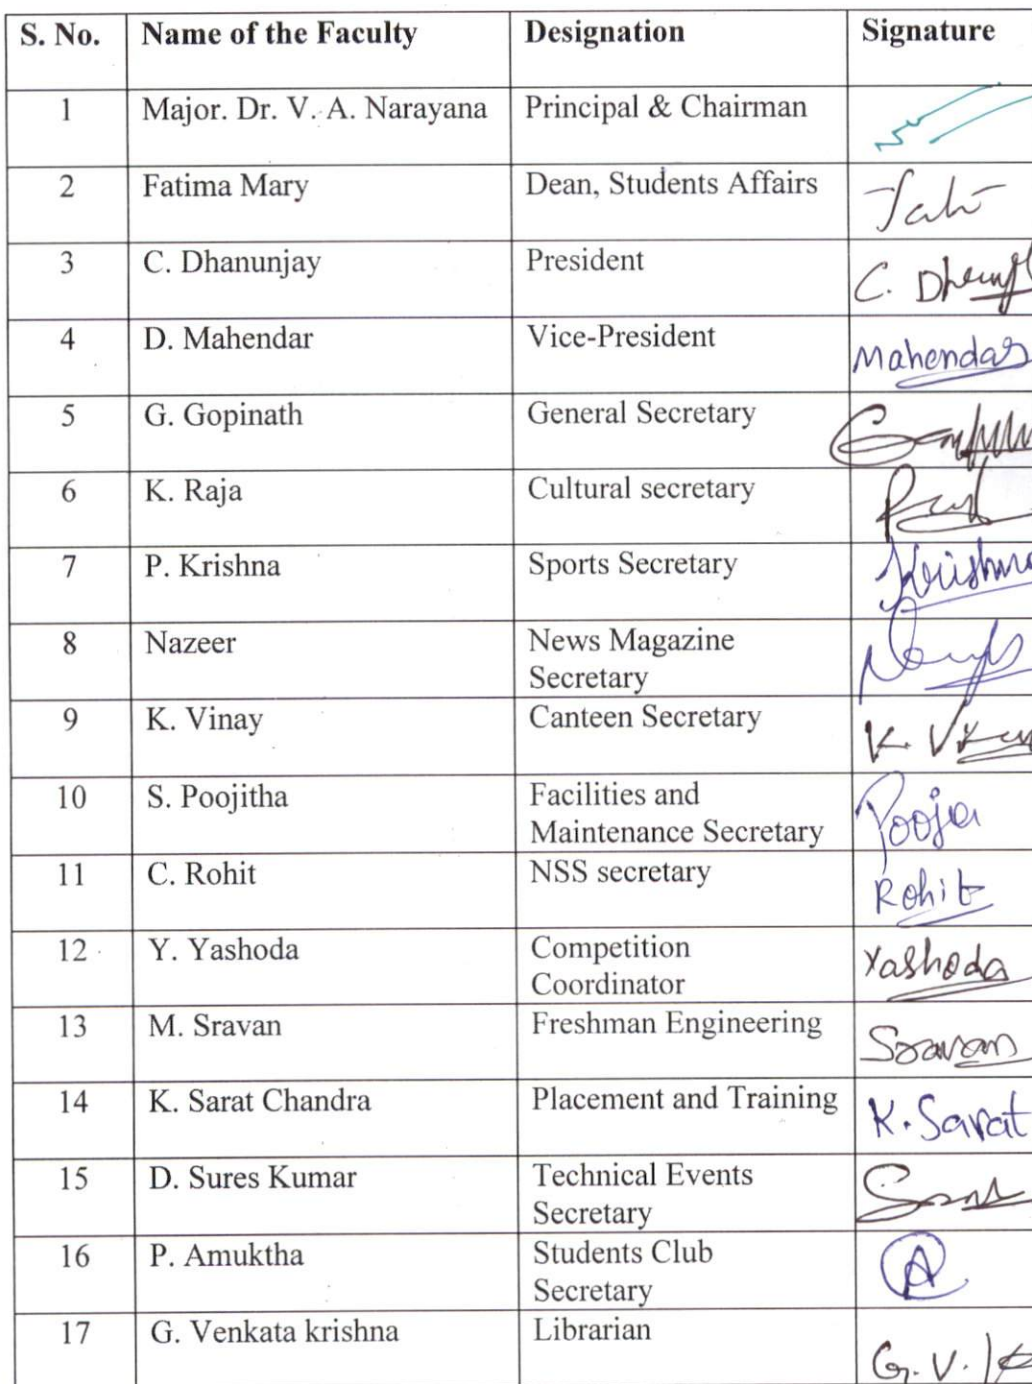 S. No. Name of the Faculty Designation Signature
1 Major. Dr. V. A. Narayana Principal & Chairman
2 Fatima Mary Dean, Students Affairs
3 C. Dhanunjay President C.
4 D. Mahendar Vice-President Mahendar
5 G. Gopinath General Secretary
6 K. Raja Cultural secretary
7 P. Krishna Sports Secretary Krishna
8 Nazeer News Magazine
Secretary
9 K. Vinay Canteen Secretary K.
10 S. Poojitha Facilities and
Maintenance Secretary Pooja
11 C. Rohit NSS secretary Rohit
12 Y. Yashoda Competition
Coordinator Yashoda
13 M. Sravan Freshman Engineering Sravan
14 K. Sarat Chandra Placement and Training K. Sarat
15 D. Sures Kumar Technical Events
Secretary
16 P. Amuktha Students Club
Secretary A
17 G. Venkata krishna Librarian G. V.